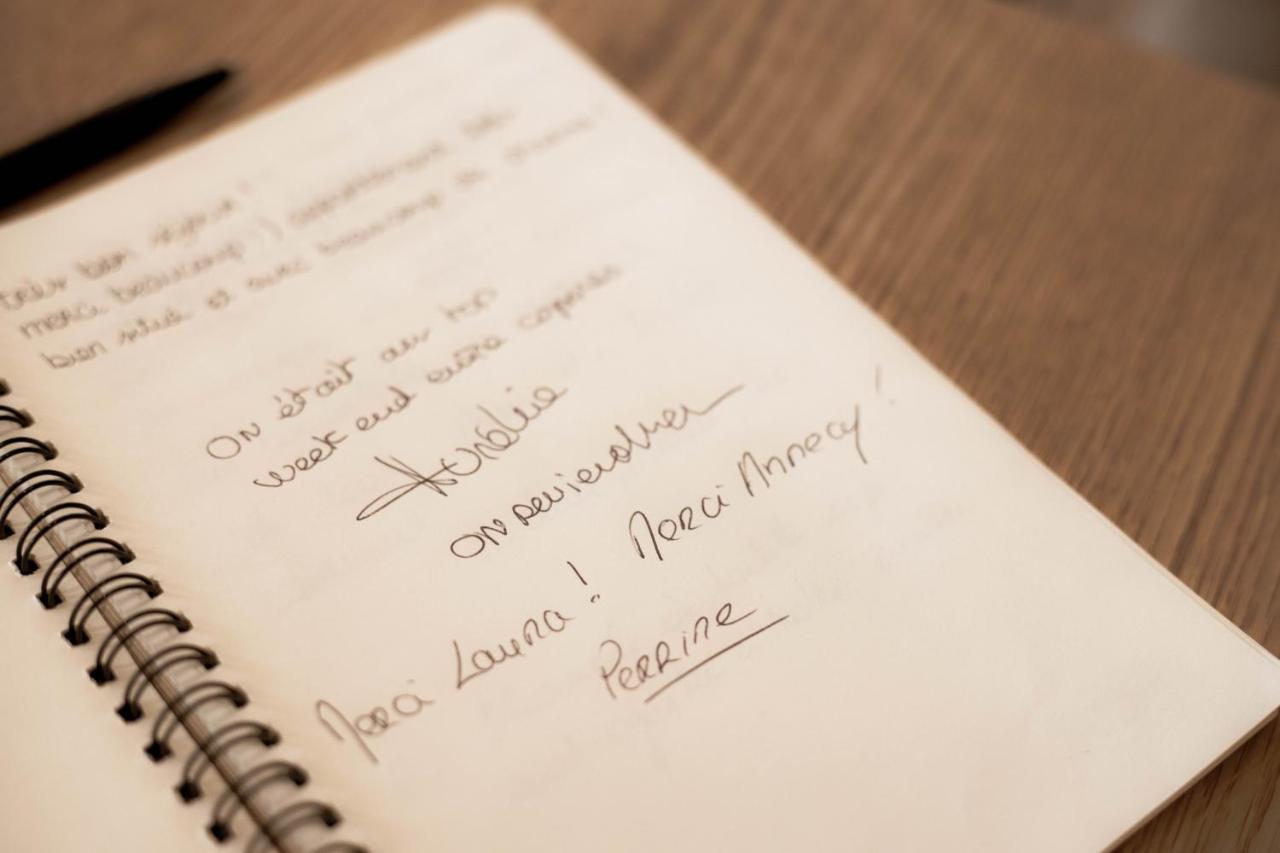 très bon séjour !
merci beaucoup :) appartement très
bien situé et avec beaucoup de charme !
On était au top
week end entre copines
Aurélie
on reviendra
Merci Laura ! Merci Annecy !
Perrine